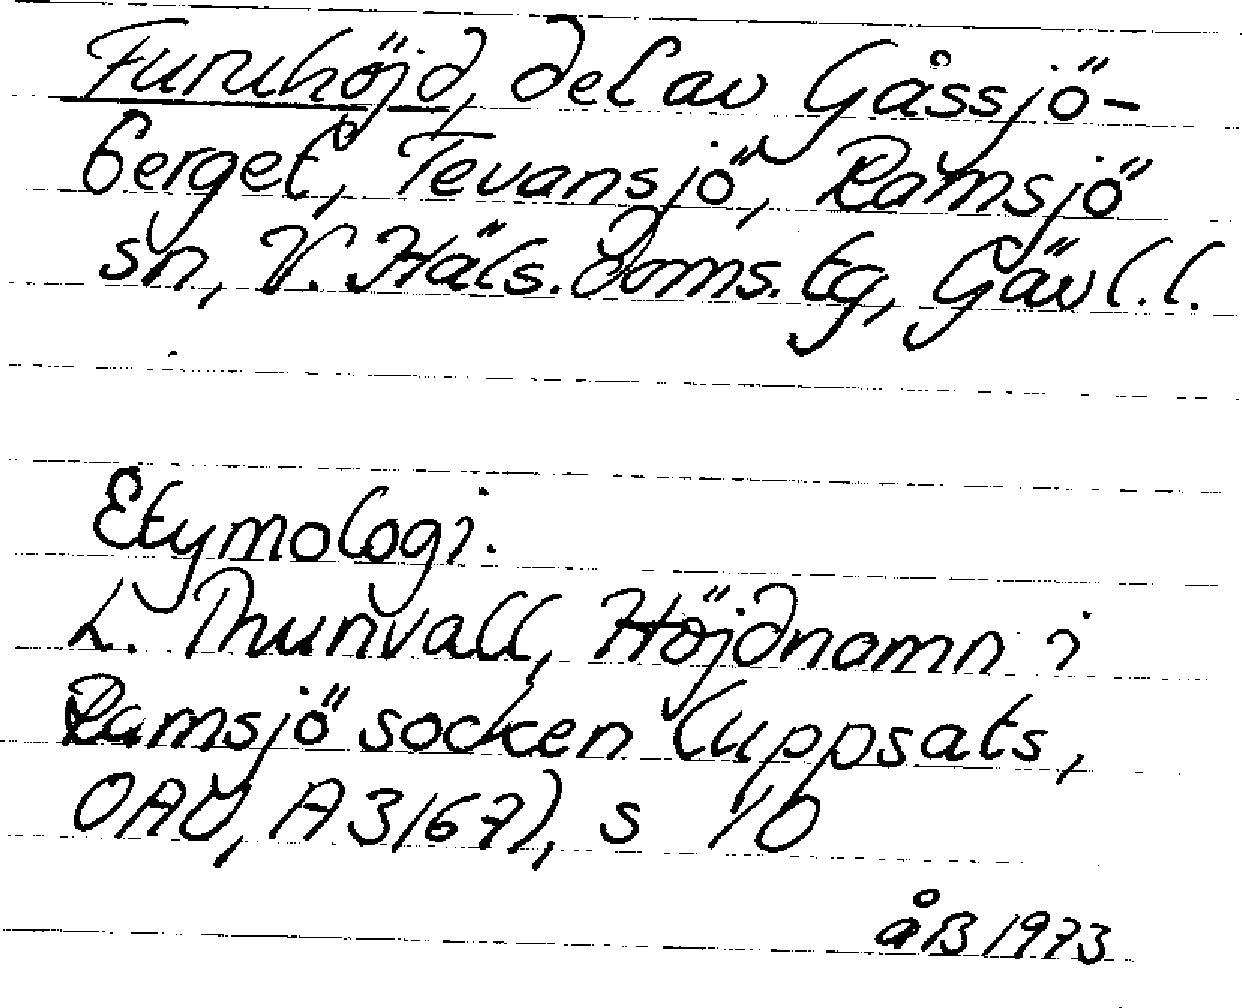 Furuhöjd, del av Gåssjö-
berget, Tevansjö, Ramsjö
sn, V. Häls. doms. tg, Gävl. l.
Etymologi.
L. Thunvall, Höjdnamn i
Ramsjö socken (uppsats,
OAU, A 3167), s 10
åB 1973